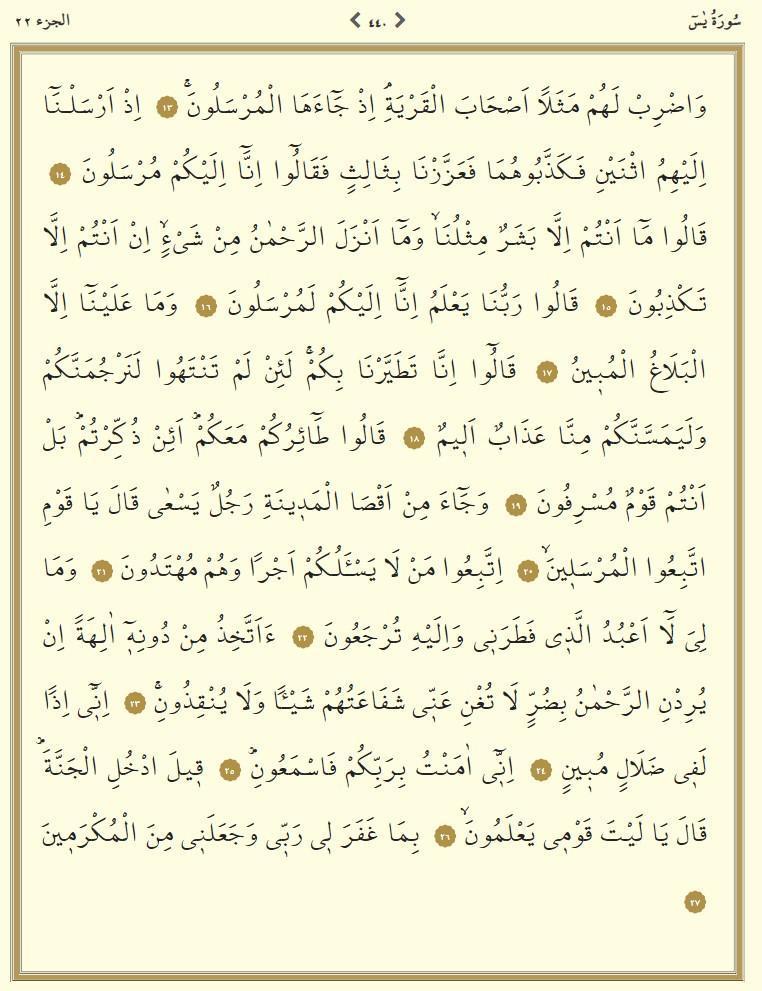 سُورَةُ يٰسٓ ٤٤٠ الجزء ٢٢
وَاضْرِبْ لَهُمْ مَثَلًا اَصْحَابَ الْقَرْيَةِۘ اِذْ جَٓاءَهَا الْمُرْسَلُونَۚ ١٣ اِذْ اَرْسَلْنَٓا
اِلَيْهِمُ اثْنَيْنِ فَكَذَّبُوهُمَا فَعَزَّزْنَا بِثَالِثٍ فَقَالُٓوا اِنَّٓا اِلَيْكُمْ مُرْسَلُونَ ١٤
قَالُوا مَٓا اَنْتُمْ اِلَّا بَشَرٌ مِثْلُنَاۙ وَمَٓا اَنْزَلَ الرَّحْمٰنُ مِنْ شَيْءٍۙ اِنْ اَنْتُمْ اِلَّا
تَكْذِبُونَ ١٥ قَالُوا رَبُّنَا يَعْلَمُ اِنَّٓا اِلَيْكُمْ لَمُرْسَلُونَ ١٦ وَمَا عَلَيْنَٓا اِلَّا
الْبَلَاغُ الْمُب۪ينُ ١٧ قَالُٓوا اِنَّا تَطَيَّرْنَا بِكُمْۚ لَئِنْ لَمْ تَنْتَهُوا لَنَرْجُمَنَّكُمْ
وَلَيَمَسَّنَّكُمْ مِنَّا عَذَابٌ اَل۪يمٌ ١٨ قَالُوا طَٓائِرُكُمْ مَعَكُمْۜ اَئِنْ ذُكِّرْتُمْۜ بَلْ
اَنْتُمْ قَوْمٌ مُسْرِفُونَ ١٩ وَجَٓاءَ مِنْ اَقْصَا الْمَد۪ينَةِ رَجُلٌ يَسْعٰى قَالَ يَا قَوْمِ
اتَّبِعُوا الْمُرْسَل۪ينَۙ ٢٠ اِتَّبِعُوا مَنْ لَا يَسْـَٔلُكُمْ اَجْرًا وَهُمْ مُهْتَدُونَ ٢١ وَمَا
لِيَ لَٓا اَعْبُدُ الَّذ۪ي فَطَرَن۪ي وَاِلَيْهِ تُرْجَعُونَ ٢٢ ءَاَتَّخِذُ مِنْ دُونِه۪ٓ اٰلِهَةً اِنْ
يُرِدْنِ الرَّحْمٰنُ بِضُرٍّ لَا تُغْنِ عَنّ۪ي شَفَاعَتُهُمْ شَيْـًٔا وَلَا يُنْقِذُونِۚ ٢٣ اِنّ۪ٓي اِذًا
لَف۪ي ضَلَالٍ مُب۪ينٍ ٢٤ اِنّ۪ٓي اٰمَنْتُ بِرَبِّكُمْ فَاسْمَعُونِۜ ٢٥ ق۪يلَ ادْخُلِ الْجَنَّةَۜ
قَالَ يَا لَيْتَ قَوْم۪ي يَعْلَمُونَۙ ٢٦ بِمَا غَفَرَ ل۪ي رَبّ۪ي وَجَعَلَن۪ي مِنَ الْمُكْرَم۪ينَ
٢٧